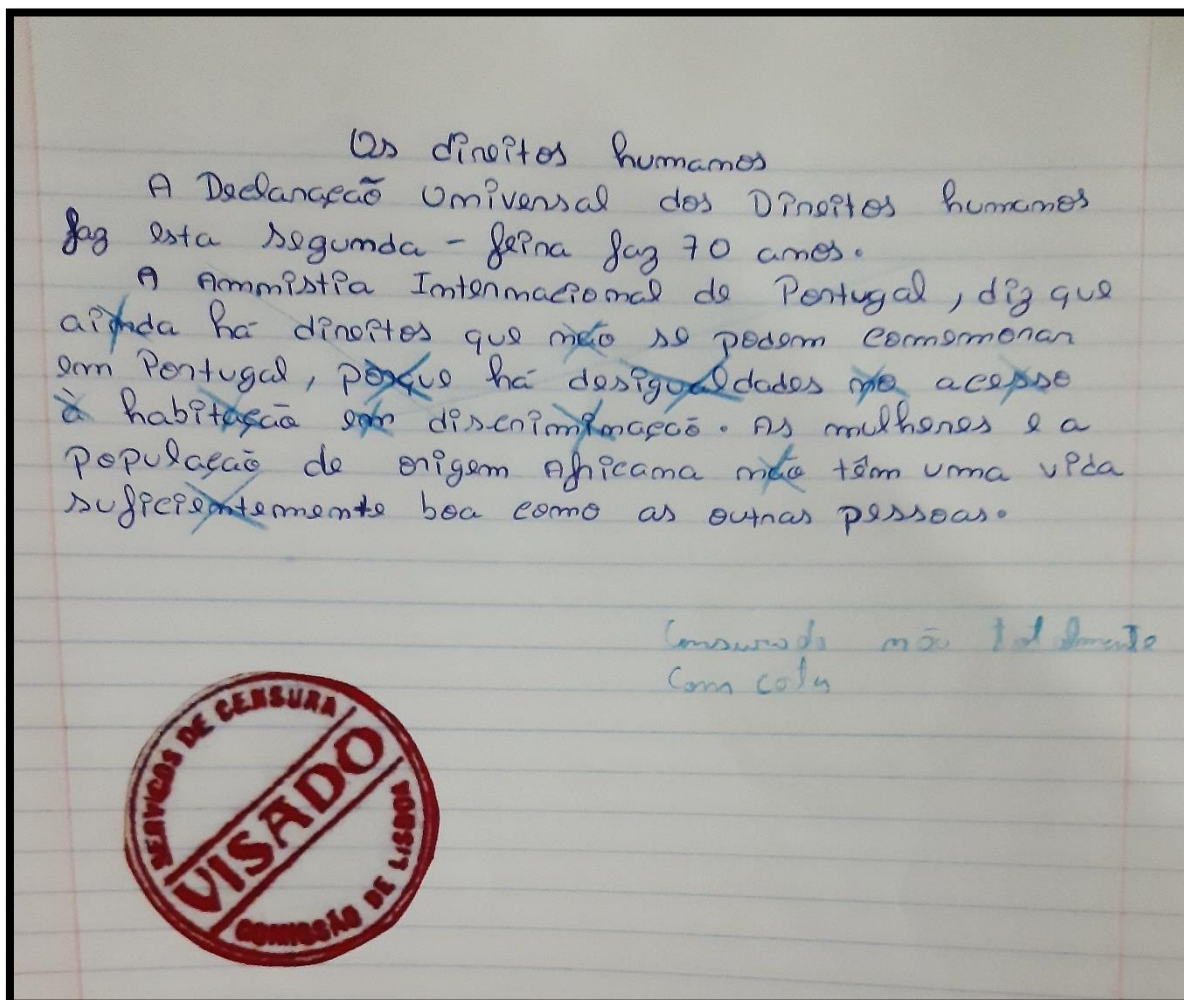 Os direitos humanos
A Declaração Universal dos Direitos humanos
faz esta segunda - feira faz 70 anos.
A Ammistia Internacional de Portugal, diz que
ainda há direitos que não se podem comemorar
em Portugal, porque há desigualdades no acesso
à habitação em discriminação. As mulheres e a
população de origem Africana não têm uma vida
suficientemente boa como as outras pessoas.
Censurado não totalmente
Com
SERVIÇOS DE CENSURA
VISADO
COMISSÃO DE LISBOA